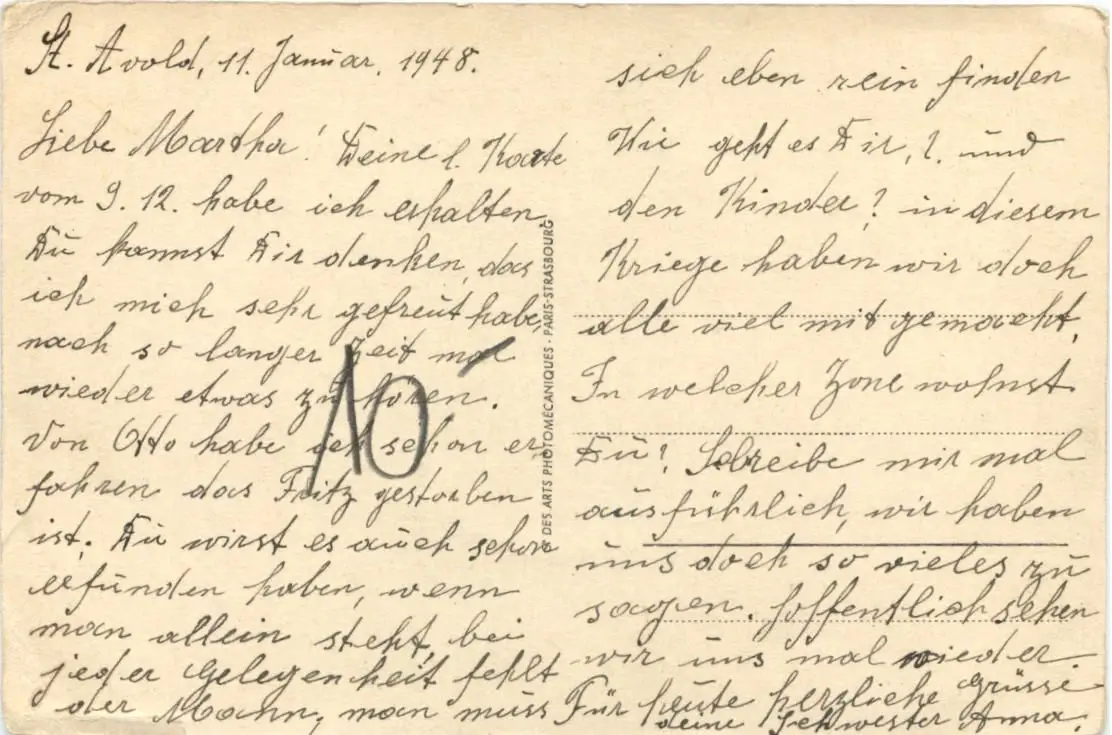 St. Avold, 11. Januar. 1948.
Liebe Martha! Deine l. Karte
vom 9. 12. habe ich erhalten,
Du kannst Dir denken, das
ich mich sehr gefreut habe
nach so langer Zeit mal
wieder etwas zu hören.
Von Otto habe ich schon er
fahren das Fritz gestorben
ist. Du wirst es auch schon
erfunden haben, wenn
man allein steht, bei
jeder Gelegenheit fehlt
der Mann, man muss
sich eben rein finden
Wie geht es Dir,?. und
den Kinder? in diesem
Kriege haben wir doch
alle viel mit gemacht,
In welcher Zone wohnst
Du? Schreibe mir mal
ausführlich, wir haben
uns doch so vieles zu
sagen. Hoffentlich sehen
wir uns mal wieder.
Für heute herzliche Grüsse
deine Schwester Anna.
DES ARTS PHOTOMECANIQUES - PARIS-STRASBOURG
10